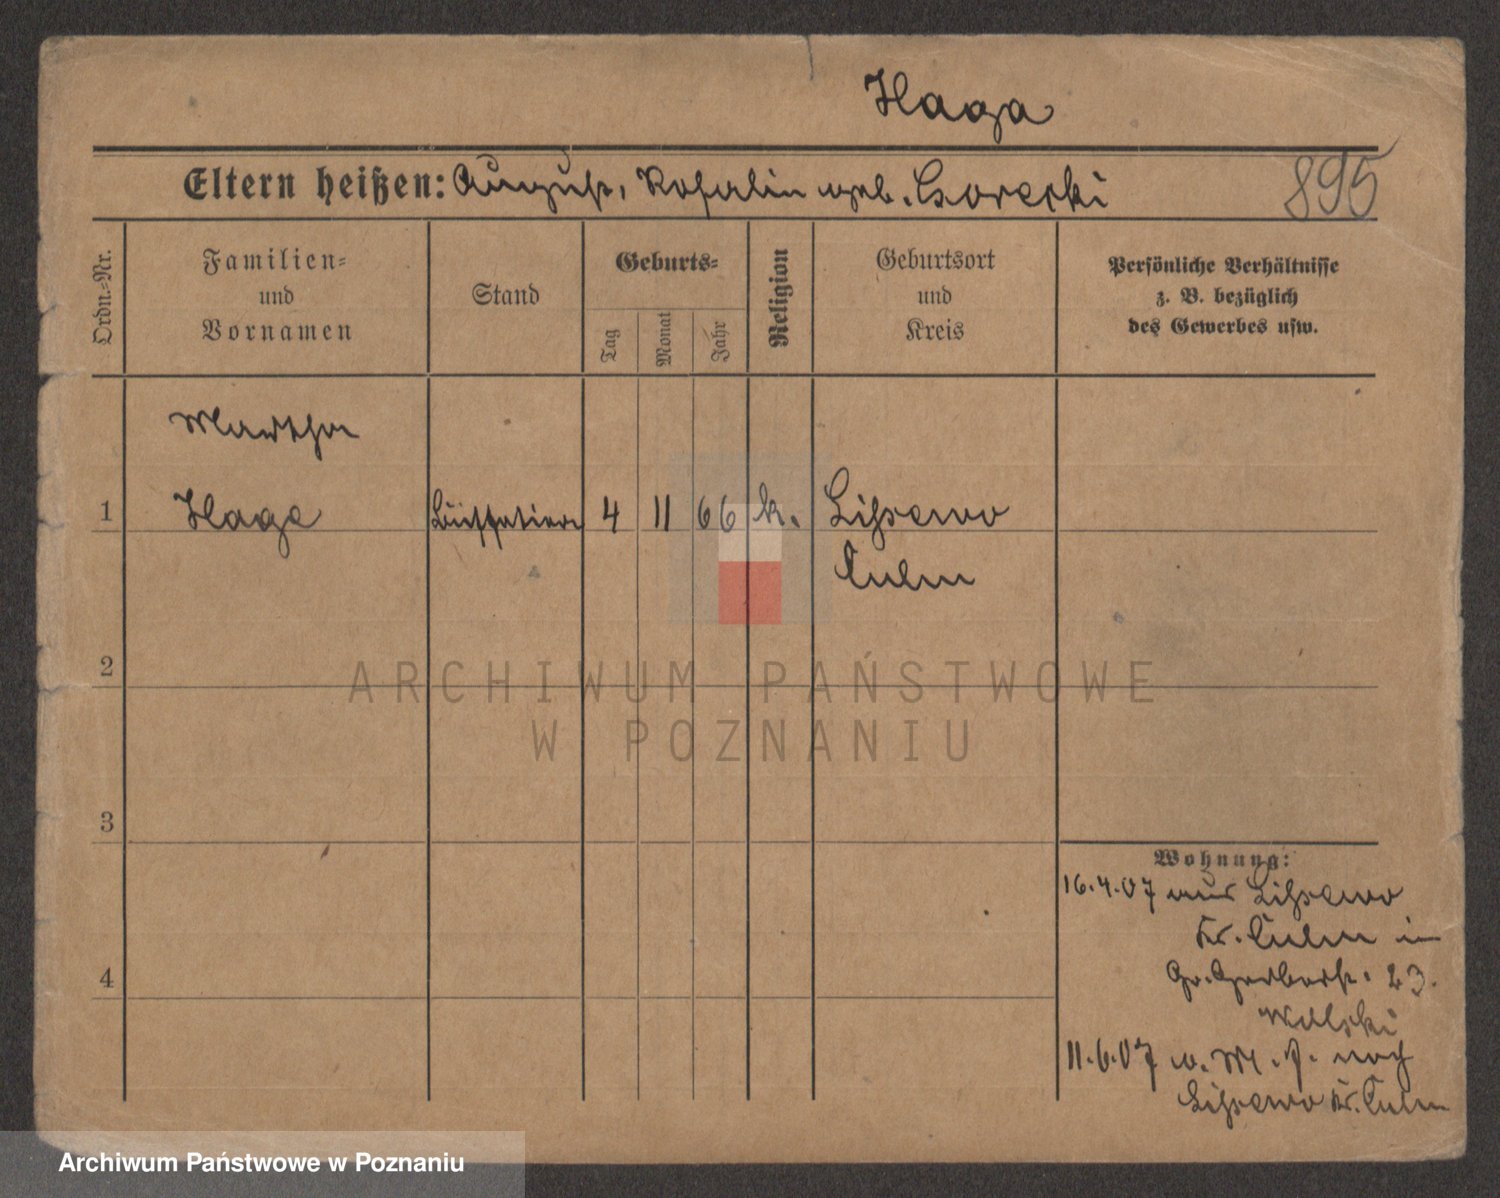 Haga
Eltern heißen: August, Rosalin geb. Gorecki
895
Ordn.-Nr.
Familien-
und
Vornamen
Stand
Geburts-
Tag
Monat
Jahr
Religion
Geburtsort
und
Kreis
Persönliche Verhältnisse
z. B. bezüglich
des Gewerbes usw.
Martha
1 Haga 4 11 66 k. Lissewo
Culm
2
3
4
Wohnung:
16.4.07 aus Lissewo
Kr. Culm in
Gr. Gerberstr. 23.
11.6.07 nach
Lissewo Kr. Culm
ARCHIWUM PAŃSTWOWE
W POZNANIU
Archiwum Państwowe w Poznaniu